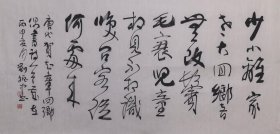 少小離家
老大回鄉音
無改鬢
毛衰兒童
相見不相識
笑問客從
何處來
唐代賀知章回鄉
偶書詩一首
丙申